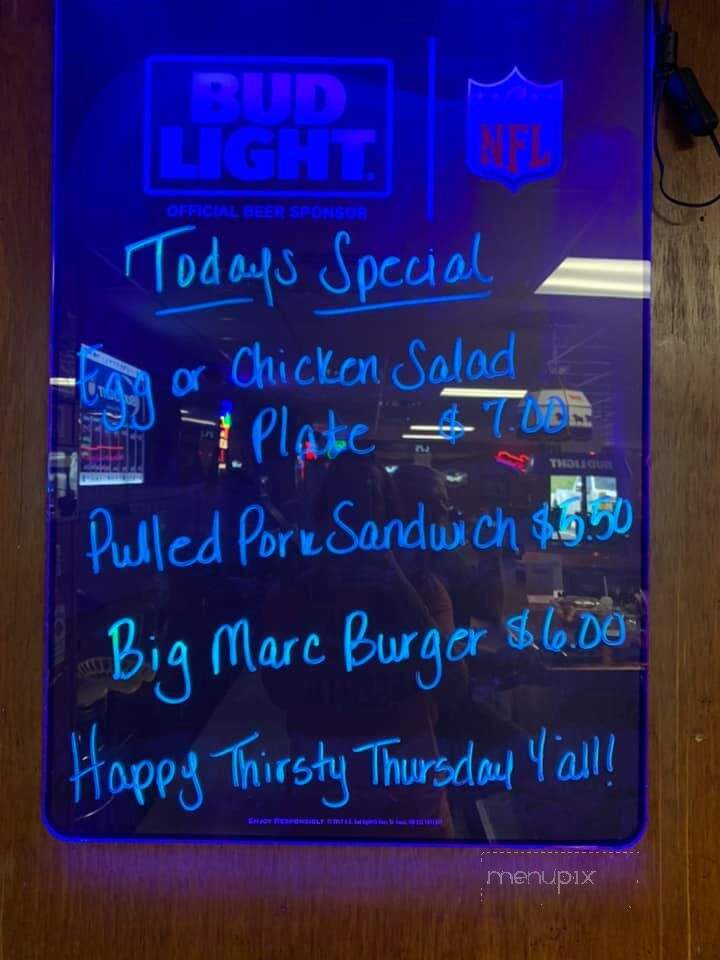 BUD
LIGHT.
NFL
OFFICIAL BEER SPONSOR
Todays Special
Egg or Chicken Salad
Plate $7.00
Pulled Pork Sandwich $5.50
Big Marc Burger $6.00
Happy Thirsty Thursday Y'all!!
ENJOY RESPONSIBLY
menupix